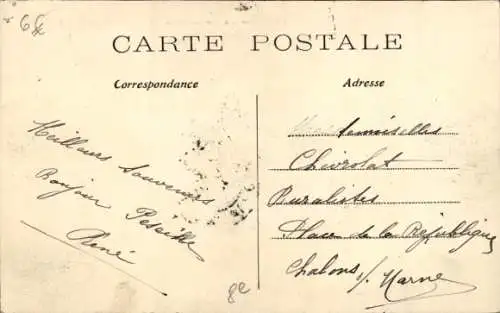 CARTE POSTALE
Correspondance
Meilleurs Souvenirs
Bonjour
René
8e
Adresse
Mesdemoiselles
Chevrolat
Buralistes
Place de la République
Chalons s/ Marne